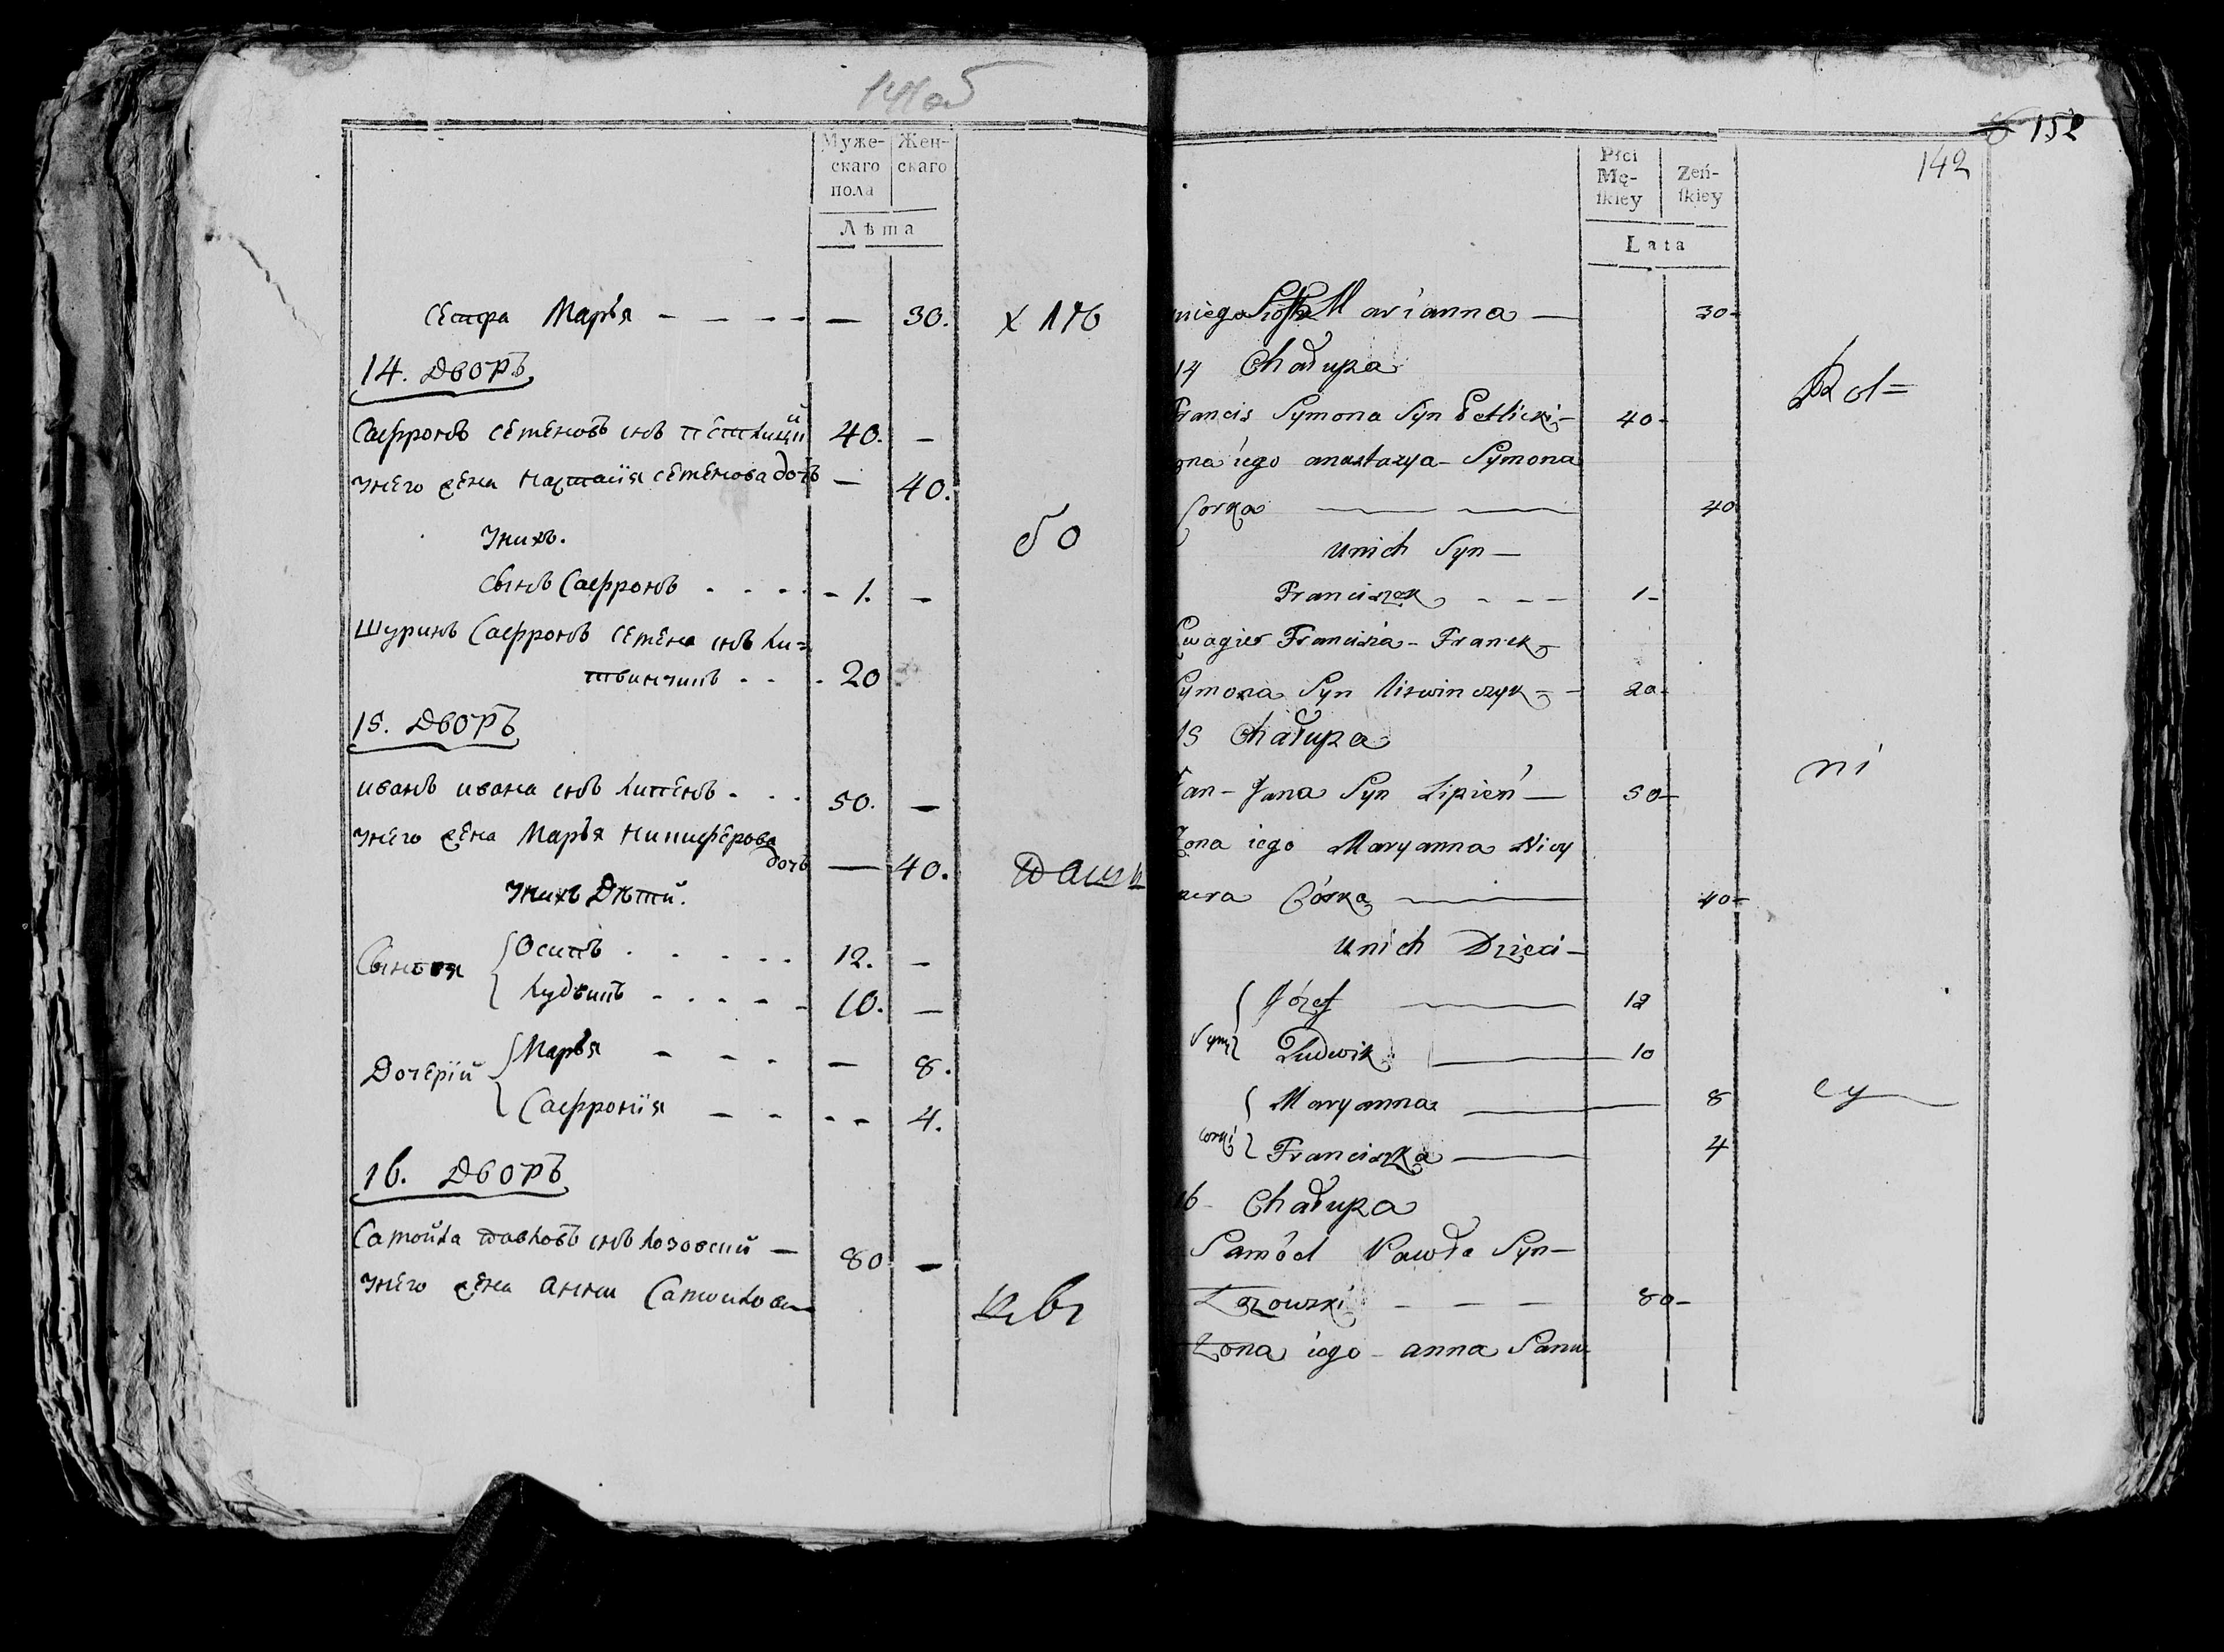 141 об
Муже-
скаго
пола
Жен-
скаго
Лѣта
сестра Марья — — — — — 30.
14. Дворъ
Сафронъ семеновъ снъ петлицкій 40. —
унего жена настасія семенова дочь — 40.
унихъ.
сынъ Сафронъ . . . . - 1. —
Шуринъ Сафронъ семена снъ ли=
твинчикъ . . . 20
15. Дворъ
иванъ ивана снъ липенъ . . . 50. —
унего жена Марья никиферова
дочь — 40.
унихъ Дѣтй.
Сыновя
Осипъ . . . . . 12. —
лудвикъ - . . . . 10. —
Дочерій
Марья - - - . — 8.
Сафронія - - - - 4.
16. Дворъ
Самойла павловъ снъ лозовскій — 80 —
унего жена анна Самойлова
бо
152
142
Płci
Mę-
ſkiey
Zeń-
ſkiey
Lata
niego Siostra Marianna — 30-
14 Chałupa
Francis Symona Syn Petlicki- 40-
ona iego anastazya - Symona
Corka — — 40
unich Syn —
Franciszek - - - 1-
Szwagier Franciszka - Franek
Symona Syn litwinczyk - - 20-
15 Chałupa
Jan - Jana Syn Lipień — 50-
Zona iego Maryanna Nicy
pera Córka — 40-
unich Dzieci -
Józef — 12
Syny
Ludwik — 10
Maryanna — 8
corki
Franciszka — 4
16 - Chałupa
Samóel Pawła Syn —
Łozowski - - - 80-
Zona iego - anna Samu
ni
cy